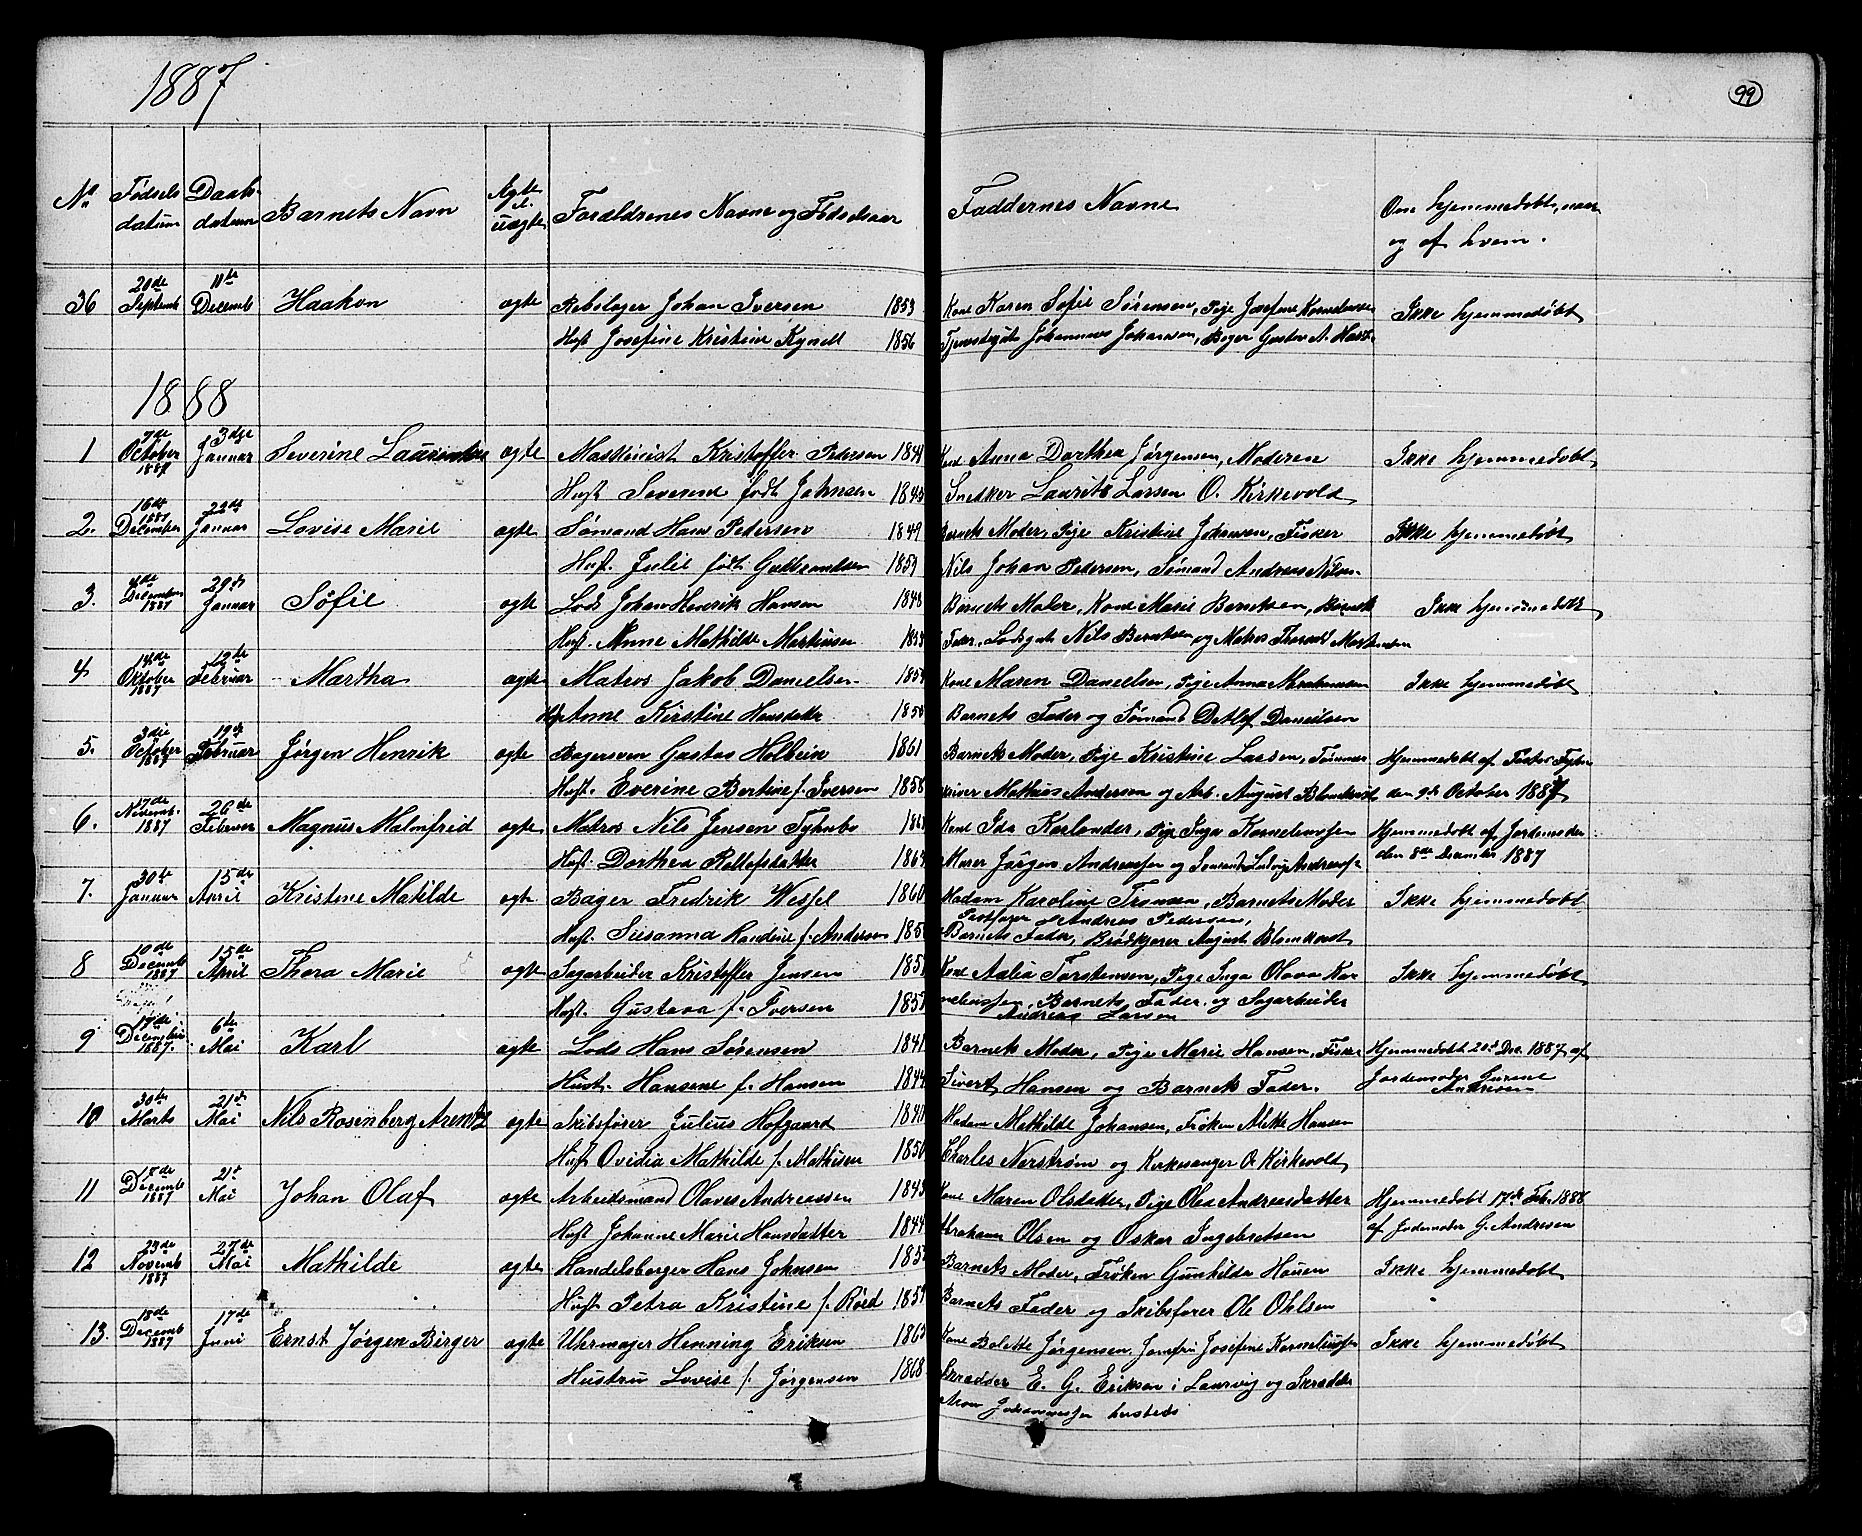 1887
99
No Fødsels datum Daabs datum Barnets Navn Ægte el. uægte Forældrenes Navne og Fødselsaar Faddernes Navne Om hjemmedøbt, naar og af hvem.
36 20de Septemb 11te Decemb Haakon ægte Rebslager Johan Iversen 1853 Kone Karen Sofie Sørensen, Pige Josefine Korneliussen Ikke hjemmedøbt
Hust Josefine Kristine Kynell 1856 Tjenstegut Johannes Johansen, Bager Gustav A.
1888
1 7de October 1887 3dje Januar Severine ægte Maskinist Kristoffer Pedersen Kone Anna Dorthea Jørgensen, Moderen Ikke hjemmedøbt
Hust. Severine født Johnsen Snedker Laurits Larsen O. Kirkevold
2. 16de Decemder 1887 22de Januar Lovise Marie ægte Sømand Hans Pedersen 1849 Barnets Moder, Pige Kristine Johansen, Fisker Ikke hjemmedøbt
Hust. Julie født Gulbrandsen Nils Johan Pedersen, Sømand Andreas Nilsen
3. Decembr 1887 29de Januar Sofie ægte Lods Johan Henrik Hansen 1848 Barnets Moder, Kone Marie Berntsen, Barnets Ikke hjemmedøbt
Hust. Anne Mathilde Martinsen Fader, Lodsgut Nils Berntsen og Matros Thorvald
4 Oktober 1887 12te Februar Martha ægte Matros Jakob Danielsen Kone Maren Danielsen, Pige Anna Abrahamsen Ikke hjemmedøbt
Anne Kirstine Hansdatter Barnets Fader og Sømand Detlof Danielsen
5. 3die October 1887 19de Februar Jørgen Henrik ægte Bagersven Gustav Holbein 1861 Barnets Moder, Pige Kristine Larsen, Tømmer Hjemmedøbt af
Hust. Everine Bertine f. Iversen 1858 skriver Mathias Andersen og Arb. August Blomkvist den 9de October 1887
6. 17de Novemb. 1887 26de Februar Magnus Malmfrid ægte Matros Nils Jensen Kone Ida Karlander, Pige Inga Korneliussen Hjemmedøbt af Jordemoder
Hust. Dorthea Rollefsdatter Murer Jørgen Andreassen og Sømand Ludvig den 8de December 1887
7. 30te Januar 15de April Kristine Matilde ægte Bager Fredrik Wessel 1860 Madam Karoline Tronsen, Barnets Moder Ikke hjemmedøbt
Andreas Pedersen,
Hust. Susanna Randine f. Andersen Barnets Fader, Brødkjører August Blomkvist
8 10de Decemb 1887 15de April Thora Marie ægte Sagarbeider Kristoffer Jensen Kone Torstensen, Pige Inga Olava Kor Ikke hjemmedøbt
Hust. Gustava f. Iversen neliussen, Barnets Fader og Sagarbeider
Andreas Larsen
9 17de December 1887. 6te Mai Karl ægte Lods Hans Sørensen 1841 Barnets Moder, Pige Marie Hansen, Fisker Hjemmedøbt Dec. 1887 af
Hust. Hansine f. Hansen 1844 Sivert Hansen og Barnets Fader. Jordemoder Andresen
10 30te Marts 21de Mai Nils Rosenberg Arentz ægte Skibsfører Julius Hofgaard Madam Mathilde Johansen, Frøken Hansen
Hust Ovidia Mathilde f. Mathisen 1850 Charles Nerstrøm og Kirkesanger O Kirkevold
11 18de Decemb 1887 21de Mai Johan Olaf ægte Arbeidsmand Olaves Andreassen 1843 Kone Maren Olsdatter, Pige Olea Andreasdatter Hjemmedøbt 17de Feb. 1888
Hust Johanne Marie Hansdatter 1844 Abraham Olsen og Oskar Ingebretsen af Jordemoder G. Andresen
12 Novemb 1887 27de Mai Mathilde ægte Handelsborger Hans Johnsen Barnets Moder, Frøken Gunhilde Hauen Ikke hjemmedøbt
Hust Petra Kristine f. Røed Barnets Fader og Skibsfører Ole Ohlsen
13. 18de Decemb 1887 17de Juni Ernst Jørgen Birger ægte Uhrmager Henning Eriksen 1863 Kone Bolette Jørgensen, Jomfru Josefine Korneliussen Ikke hjemmedøbt
Hustru Lovise f. Jørgensen 1868 Skrædder E. G. Eriksen i Laurvig og Skrædder
Aron Johannessen husteds